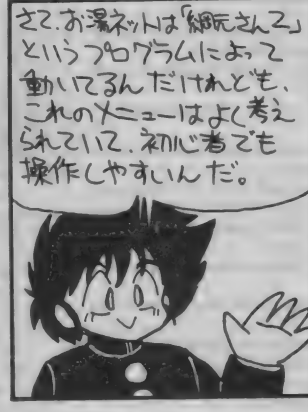 さて、お湯ネットは「網元さん2」
というプログラムによって
動いてるんだけれども、
これのメニューはよく考え
られていて、初心者でも
操作しやすいんだ。